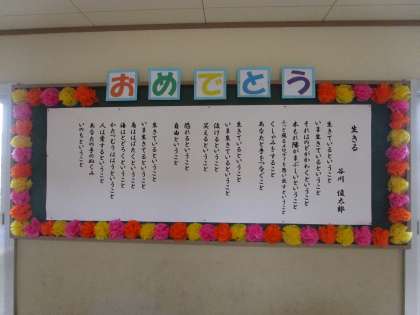 おめでとう
生きる
谷川 俊太郎
生きているということ
いま生きているということ
それはのどがかわくということ
木もれ陽がまぶしいということ
ふっと或るメロディを思い出すということ
くしゃみをすること
あなたと手をつなぐこと
生きているということ
いま生きているということ
泣けるということ
笑えるということ
怒れるということ
自由ということ
生きているということ
いま生きているということ
鳥ははばたくということ
海はとどろくということ
かたつむりははうということ
人は愛するということ
あなたの手のぬくみ
いのちということ